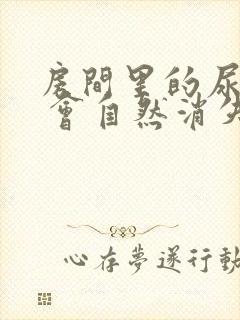 房間里的尿
會自然消失
心存夢遂行動